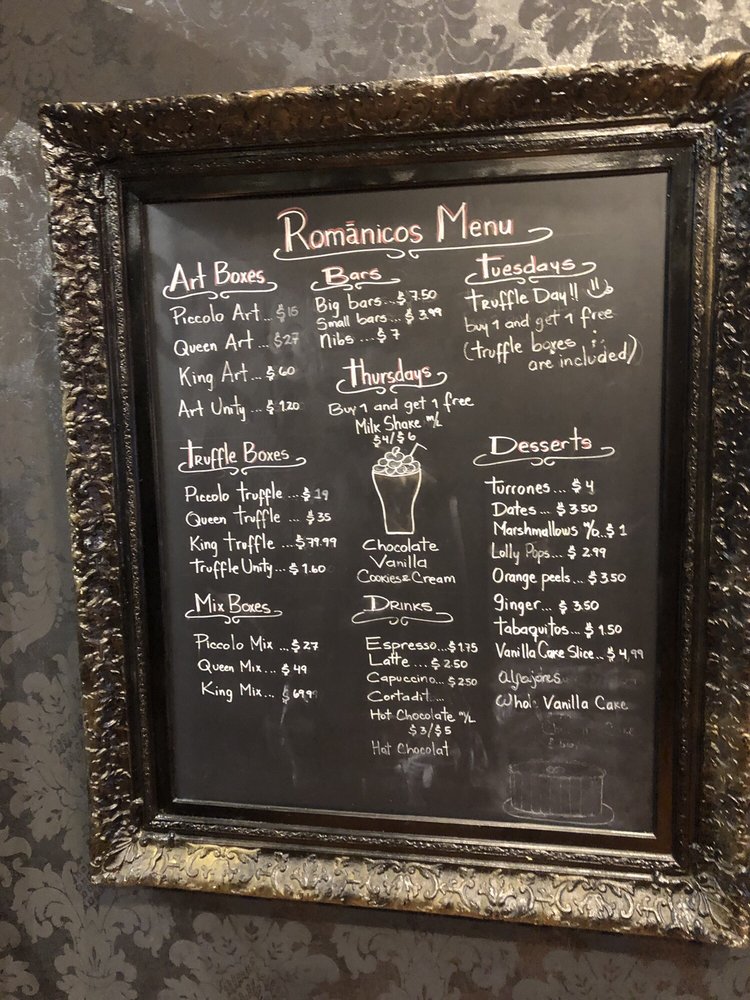 Romānicos Menu
Art Boxes
Piccolo Art... $15
Queen Art... $27
King Art... $60
Art Unity... $1.20
Truffle Boxes
Piccolo truffle ...$19
Queen Truffle ...$35
King truffle ...$79.99
Truffle Unity...$1.60
Mix Boxes
Piccolo Mix ...$27
Queen Mix...$49
King Mix...$69.99
Bars
Big bars...$7.50
Small bars...$3.99
Nibs ...$7
Thursdays
Buy 1 and get 1 free
Milk Shake m/L
$4/$6
Chocolate
Vanilla
Cookies&Cream
Drinks
Espresso...$1.75
Latte ...$2.50
Capuccino...$2.50
Cortadit...
Hot Chocolate m/L
$3/$5
Hot Chocolat
Tuesdays
Truffle Day!!
buy 1 and get 1 free
(truffle boxes
are included)
Desserts
Turrones... $4
Dates... $3.50
Marshmallows ...$1
Lolly Pops... $2.99
Orange peels... $3.50
ginger... $3.50
tabaquitos... $1.50
Vanilla Cake Slice...$4,99
alfajores
Whol Vanilla Cake